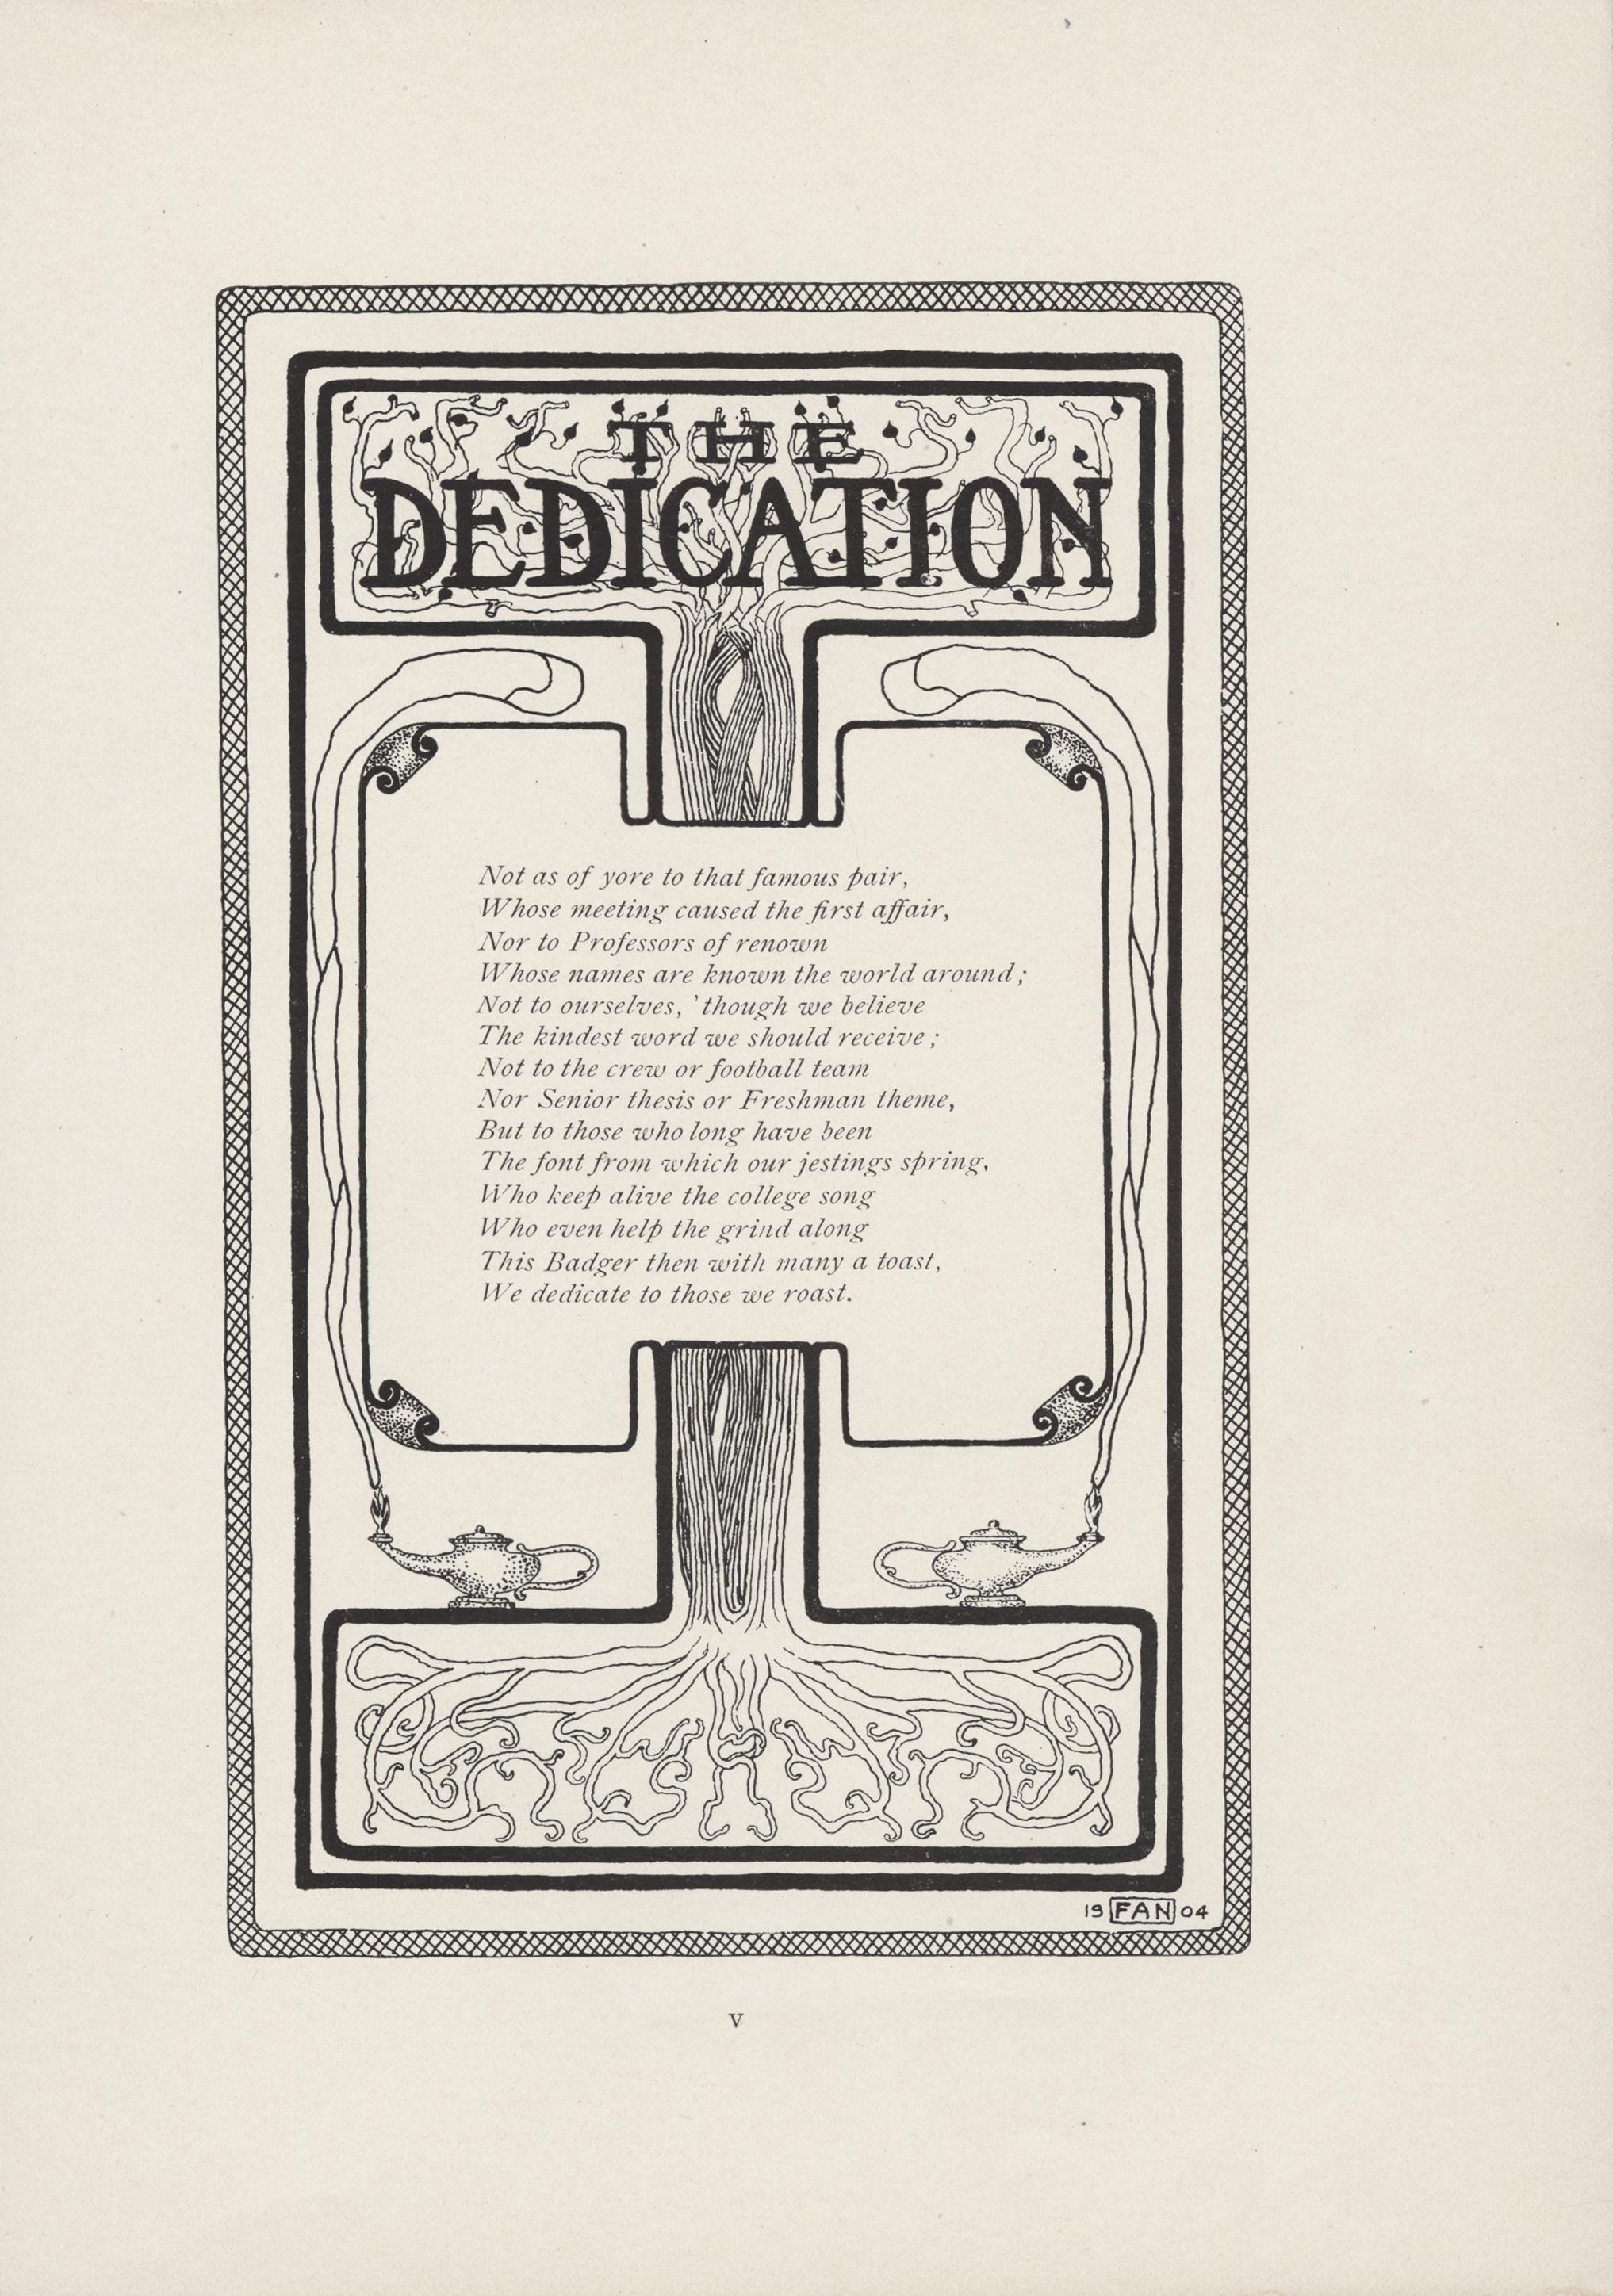 THE
DEDICATION
Not as of yore to that famous pair,
Whose meeting caused the first affair,
Nor to Professors of renown
Whose names are known the world around;
Not to ourselves, 'though we believe
The kindest word we should receive;
Not to the crew or football team
Nor Senior thesis or Freshman theme,
But to those who long have been
The font from which our jestings spring,
Who keep alive the college song
Who even help the grind along
This Badger then with many a toast,
We dedicate to those we roast.
19 FAN 04
v